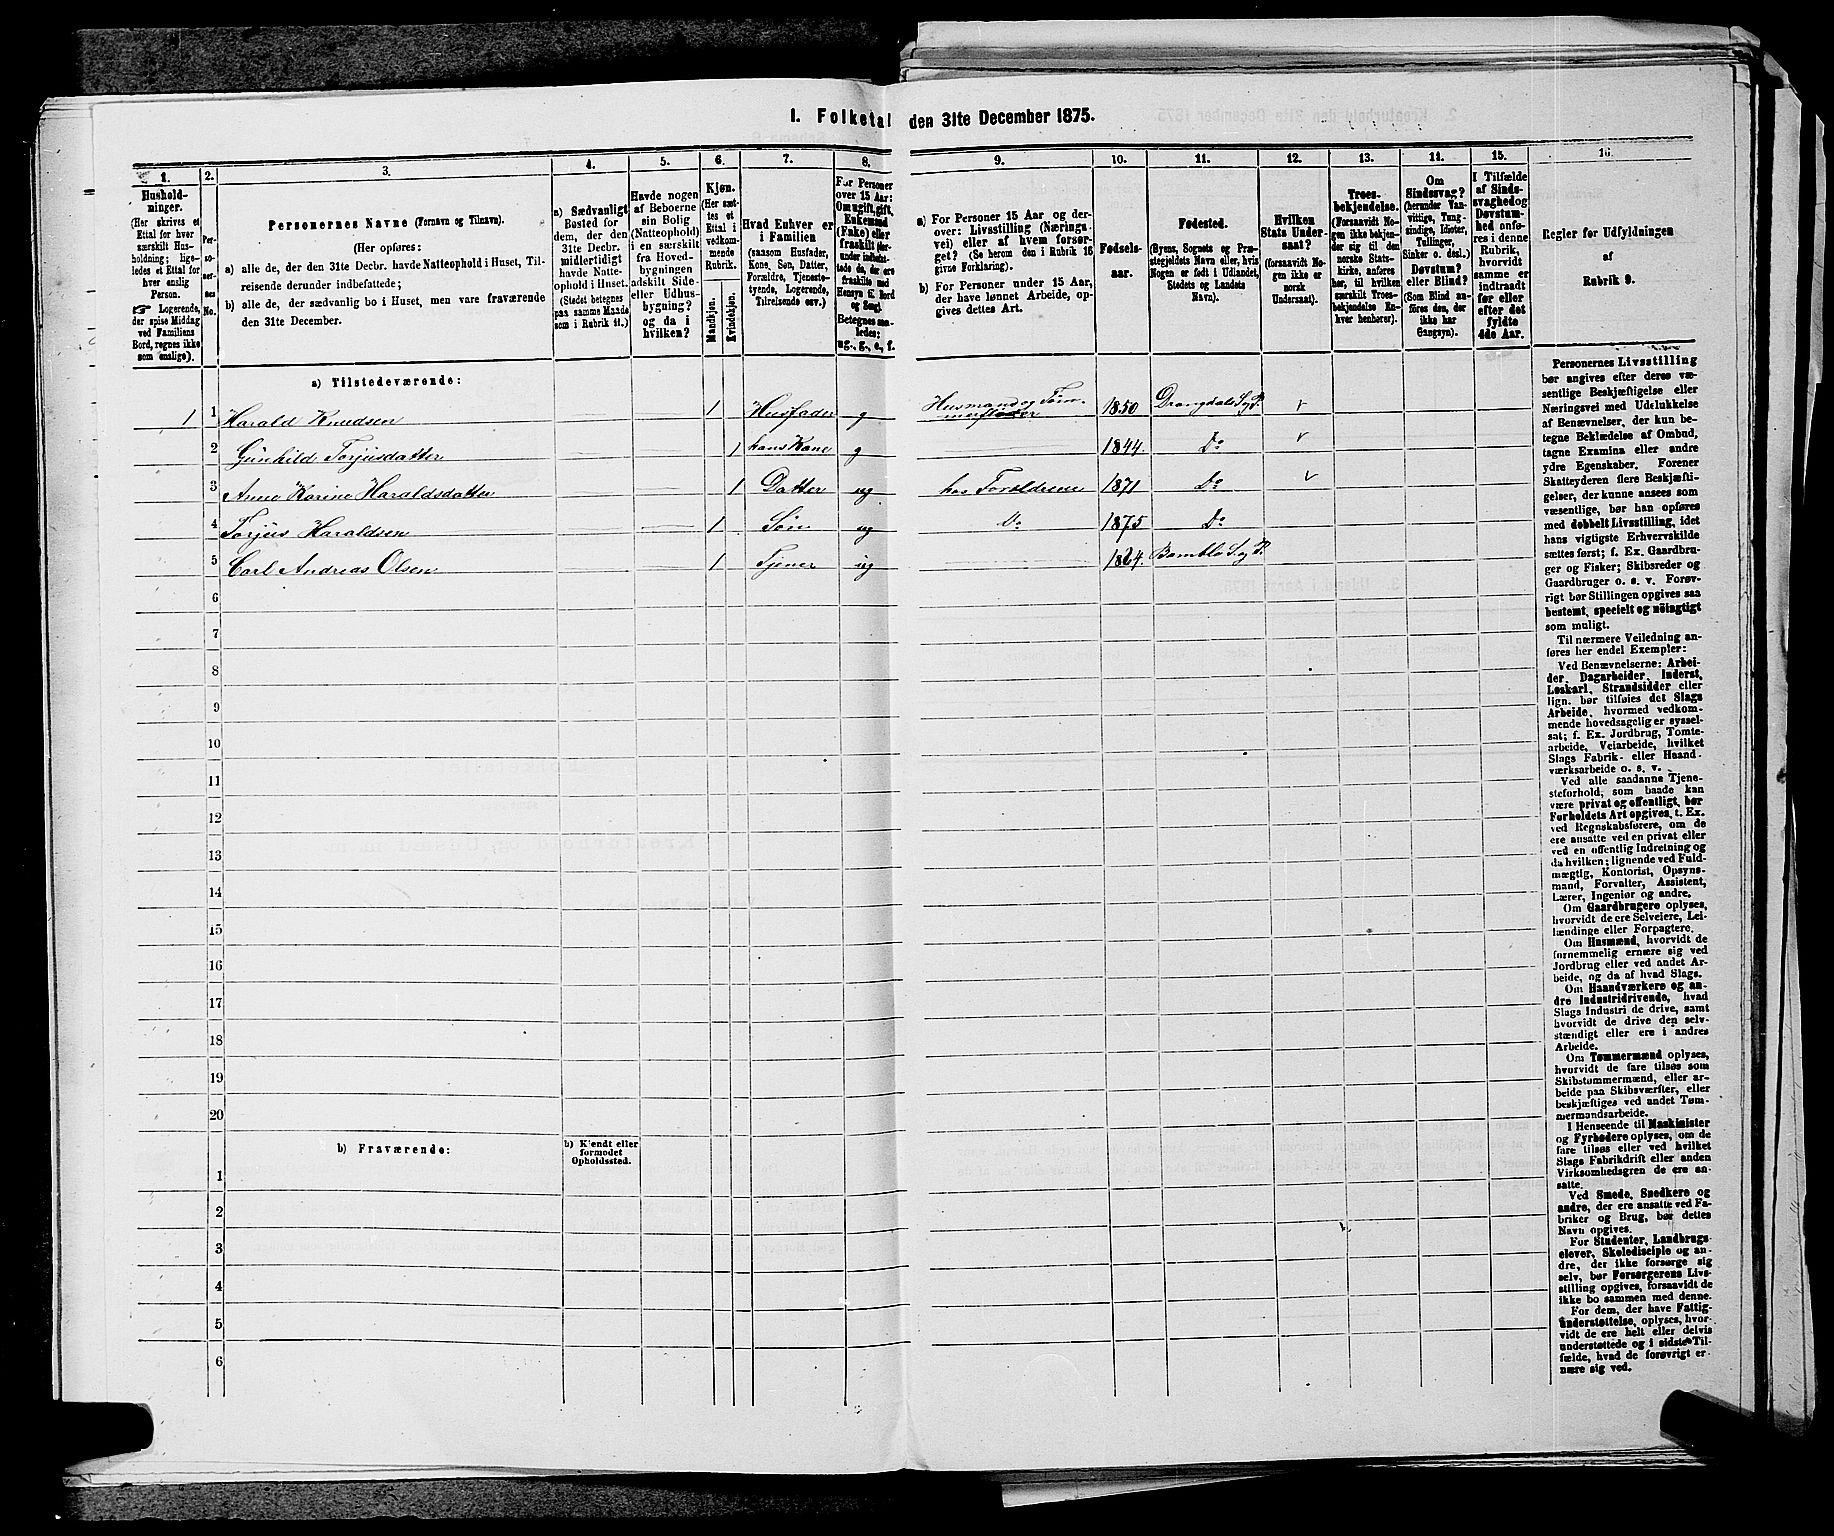 1. Folketal den 31te December 1875.
1.
Hushold-
ninger.
(Her skrives et
Ettal for hver
særskilt Hus-
holdning; lige-
ledes et Ettal for
hver enslig
Person.
☞ Logerende,
der spise Middag
ved Familiens
Bord, regnes ikke
som enslige).
2.
Per-
so-
ner-
nes
No.
3.
Personernes Navne (Fornavn og Tilnavn).
(Her opføres:
a) alle de, der den 31te Decbr. havde Natteophold i Huset, Til-
reisende derunder indbefattede;
b) alle de, der sædvanlig bo i Huset, men vare fraværende
den 31te December.
4.
a) Sædvanligt
Bosted for
dem, der den
31te Decbr.
midlertidigt
havde Natte-
ophold i Huset.
(Stedet betegnes
paa samme Maade
som i Rubrik 11.)
5.
Havde nogen
af Beboerne
sin Bolig
(Natteophold)
i en særskilt
fra Hoved-
bygningen
adskilt Side-
eller Udhus-
bygning?
og da i
hvilken?
6.
Kjøn.
(Her sæt-
tes et
Ettal i
vedkom-
mende
Rubrik.
Mandkjøn.
Kvindekjøn.
7.
Hvad Enhver er
i Familien
(saasom Husfader,
Kone, Søn, Datter,
Forældre, Tjeneste-
tyende, Logerende,
Tilreisende osv.)
8.
For Personer
over 15 Aar:
Om ugift, gift,
Enkemand
(Enke) eller
fraskilt
og Seng).
Betegnes saa-
ledes:
ug., g., e., f.
9.
a) For Personer 15 Aar og der-
over: Livsstilling (Nærings-
vei) eller af hvem forsør-
get? (Se herom den i Rubrik 16
givne Forklaring).
b) For Personer under 15 Aar,
der have lønnet Arbeide, op-
gives dettes Art.
10.
Fødsels-
aar.
11.
Fødested.
(Byens, Sognets og Præ-
stegjeldets Navn eller, hvis
Nogen er født i Udlandet,
Stedets og Landets
Navn).
12.
Hvilken
Stats Under-
saat?
(forsaavidt No-
gen ikke er
norsk
Undersaat).
13.
Troes-
bekjendelse.
(Forsaavidt No-
gen ikke bekjen-
der sig til den
norske Stats-
kirke, anføres
her, til hvilken
særskilt Troes-
bekjendelse En-
hver henhører).
14.
Om
Sindssvag?
(herunder Van-
vittige, Tung-
sindige, Idioter,
Tullinger,
Sinker o. desl.).
Døvstum?
eller Blind?
(Som Blind an-
føres den, der
ikke har
Gangsyn).
15.
I Tilfælde
af Sinds-
svaghed og
Døvstum-
hed anfø-
res i denne
Rubrik,
hvorvidt
samme er
indtraadt
før eller
efter det
fyldte
4de Aar.
16.
Regler for Udfyldningen
af
Rubrik 9.
a) Tilstedeværende:
1 1 Harald Knudsen 1 Husfader g Husmand og Töm- merfløder 1850 Drangedal S. og P.
2 Gunhild Torjusdatter 1 hans Kone g 1844. Do
3 Anne Karine Haraldsdatter 1 Datter ug hos Foreldrene 1871 Do
4 Torjus Haraldsen 1 Søn ug Do 1875 Do
5 Carl Andreas Olsen 1 Tjener ug Bamble S. og P.
6
7
8
9
10
11
12
13
14
15
16
17
18
19
20
b) Fraværende:
b) Kjendt eller
formodet
Opholdssted.
1
2
3
4
5
6
Personernes Livsstilling
bør angives efter deres væ-
sentlige Beskjæftigelse eller
Næringsvei med Udelukkelse
af Benævnelser, der kun be-
tegne Beklædelse af Ombud,
tagne Examina eller andre
ydre Egenskaber. Forener
Skatteyderen flere Beskjæfti-
gelser, der kunne ansees som
væsentlige, bør han opføres
med dobbelt Livsstilling, idet
hans vigtigste Erhvervskilde
sættes først; f. Ex. Gaardbru-
ger og Fisker; Skibsreder og
Gaardbruger o. s. v. Forøv-
rigt bør Stillingen opgives saa
bestemt, specielt og nöiagtigt
som muligt.
Til nærmere Veiledning an-
føres her endel Exempler:
Ved Benævnelserne: Arbei-
der, Dagarbeider, Inderst,
Løskarl, Strandsidder eller
lign. bør tilføies det Slags
Arbeide, hvormed vedkom-
mende hovedsagelig er syssel-
sat; f. Ex. Jordbrug, Tomte-
arbeide, Veiarbeide, hvilket
Slags Fabrik- eller Haand-
værksarbeide o. s. v.
Ved alle saadanne Tjene-
steforhold, som baade kan
være privat og offentligt, bør
Forholdets Art opgives, t. Ex.
ved Regnskabsførere, om de
ere ansatte ved en privat eller
ved en offentlig Indretning og
da hvilken; lignende ved Fuld-
mægtig, Kontorist, Opsyns-
mand, Forvalter, Assistent,
Lærer, Ingeniør og andre.
Om Gaardbrugere oplyses,
hvorvidt de ere Selveiere, Lei-
lændinge eller Forpagtere.
Om Husmænd, hvorvidt de
fornemmelig ernære sig ved
Jordbrug eller ved andet Ar-
beide, og da af hvad Slags.
Om Haandværkere og an-
dre Industridrivende, hvad
Slags Industri de drive, samt
hvorvidt de drive den selv-
stændigt eller ere i andres
Arbeide.
Om Tømmermænd oplyses,
hvorvidt de fare tilsøs som
Skibstømmermænd, eller ar-
beide paa Skibsværfter, eller
beskjæftiges ved andet Tøm-
mermandsarbeide.
I Henseende til Maskinister
og Fyrbødere oplyses, om de
fare tilsøs eller ved hvilket
Slags Fabrikdrift eller anden
Virksomhedsgren de ere an-
satte.
Ved Smede, Snedkere og
andre, der ere ansatte ved Fa-
briker og Brug, bør dettes
Navn opgives.
For Studenter, Landbrugs-
elever, Skoledisciple og an-
dre, der ikke forsørge sig
selv, bør Forsørgerens Livs-
stilling opgives, forsaavidt de
ikke bo sammen med denne.
For dem, der have Fattig-
understøttelse, oplyses, hvor-
vidt de ere helt eller delvis
understøttede og i sidste Til-
fælde, hvad de forøvrigt er-
nære sig ved.